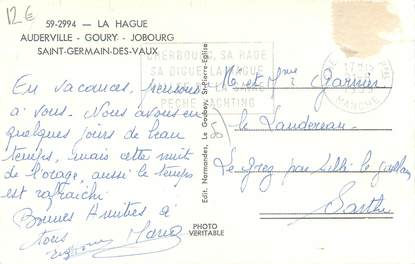 12€
59-2994 — LA HAGUE
AUDERVILLE - GOURY - JOBOURG
SAINT-GERMAIN-DES-VAUX
CHERBOURG, SA RADE
SA DIGUE LA PLUS
PECHE YACHTING
17H15
MANCHE
En vacances, pensons
à vous. Nous avons eu
quelques jours de beau
temps, mais cette nuit
de l'orage, aussi le temps
est rafraîchi
Bonnes Amitiés à
tous
Edit. Normandes, Le Goubey, St-Pierre-Eglise
M. et Mme Garnier
le Landereau
Le Grez par Sillé le Guillaume
Sarthe
PHOTO
VERITABLE